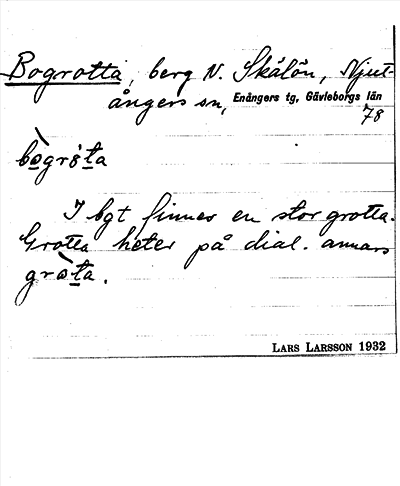 Bogrotta, berg N. Skålön, Njut-
ångers sn, Enångers tg, Gävleborgs län
78
bògrò̀ta
I bgt finnes en stor grotta.
Grotta heter på dial. annars
gròta.
LARS LARSSON 1932